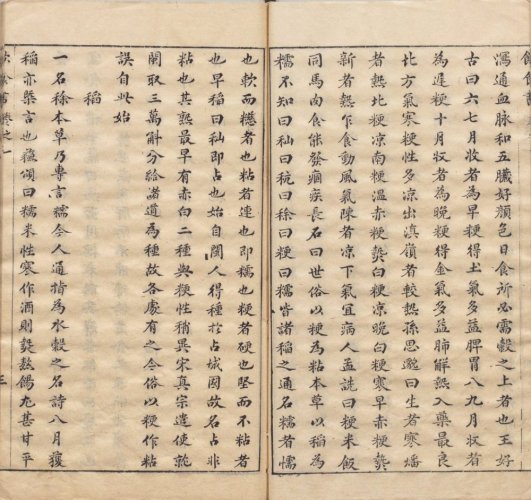 瀉通血脉和五臟好顏色日食所必需穀之上者也王好
古曰六七月收者為早粳得土氣多益脾胃八九月收者
為遲粳十月收者為晚粳得金氣多益肺解熱入藥最良
比方氣寒粳性多凉出滇嶺者較熱孫思邈曰生者寒燔
者熱北粳凉南粳溫赤粳熱白粳凉晚白粳寒早赤粳熱
新者熱乍食動風氣陳者凉下氣宜病人孟詵曰粳米飯
同馬肉食能發痼疾長石曰世俗以粳為粘本草以稻為
糯不知曰秈曰秔曰稌曰粳曰糯皆諸稻之通名糯者懦
也軟而穤者也粘者連也即糯也粳者硬也堅而不粘者
也早稻曰秈即占也始自閩人得種於占城國故名占非
粘也其熟最早有赤白二種與粳性稍異宋真宗遣使就
閩取三萬斛分給諸道為種故各處有之今俗以粳作粘
誤自此始
稻
一名稌本草乃專言糯今人通指為水穀之名詩八月穫
稻亦槩言也蘇頌曰糯米性寒作酒則熱熬餳尤甚甘平
卷之一
三